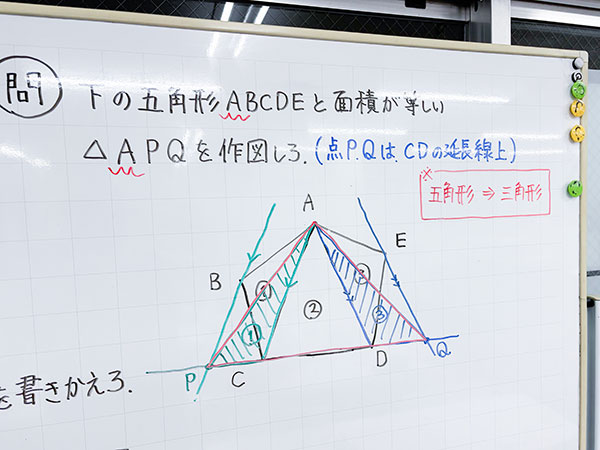 問
下の五角形ABCDEと面積が等しい
△APQを作図しろ.(点P.Qは、CDの延長線上)
※
五角形⇒三角形
A
E
B
①
②
③
①
③
P
C
D
Q
を書きかえろ.